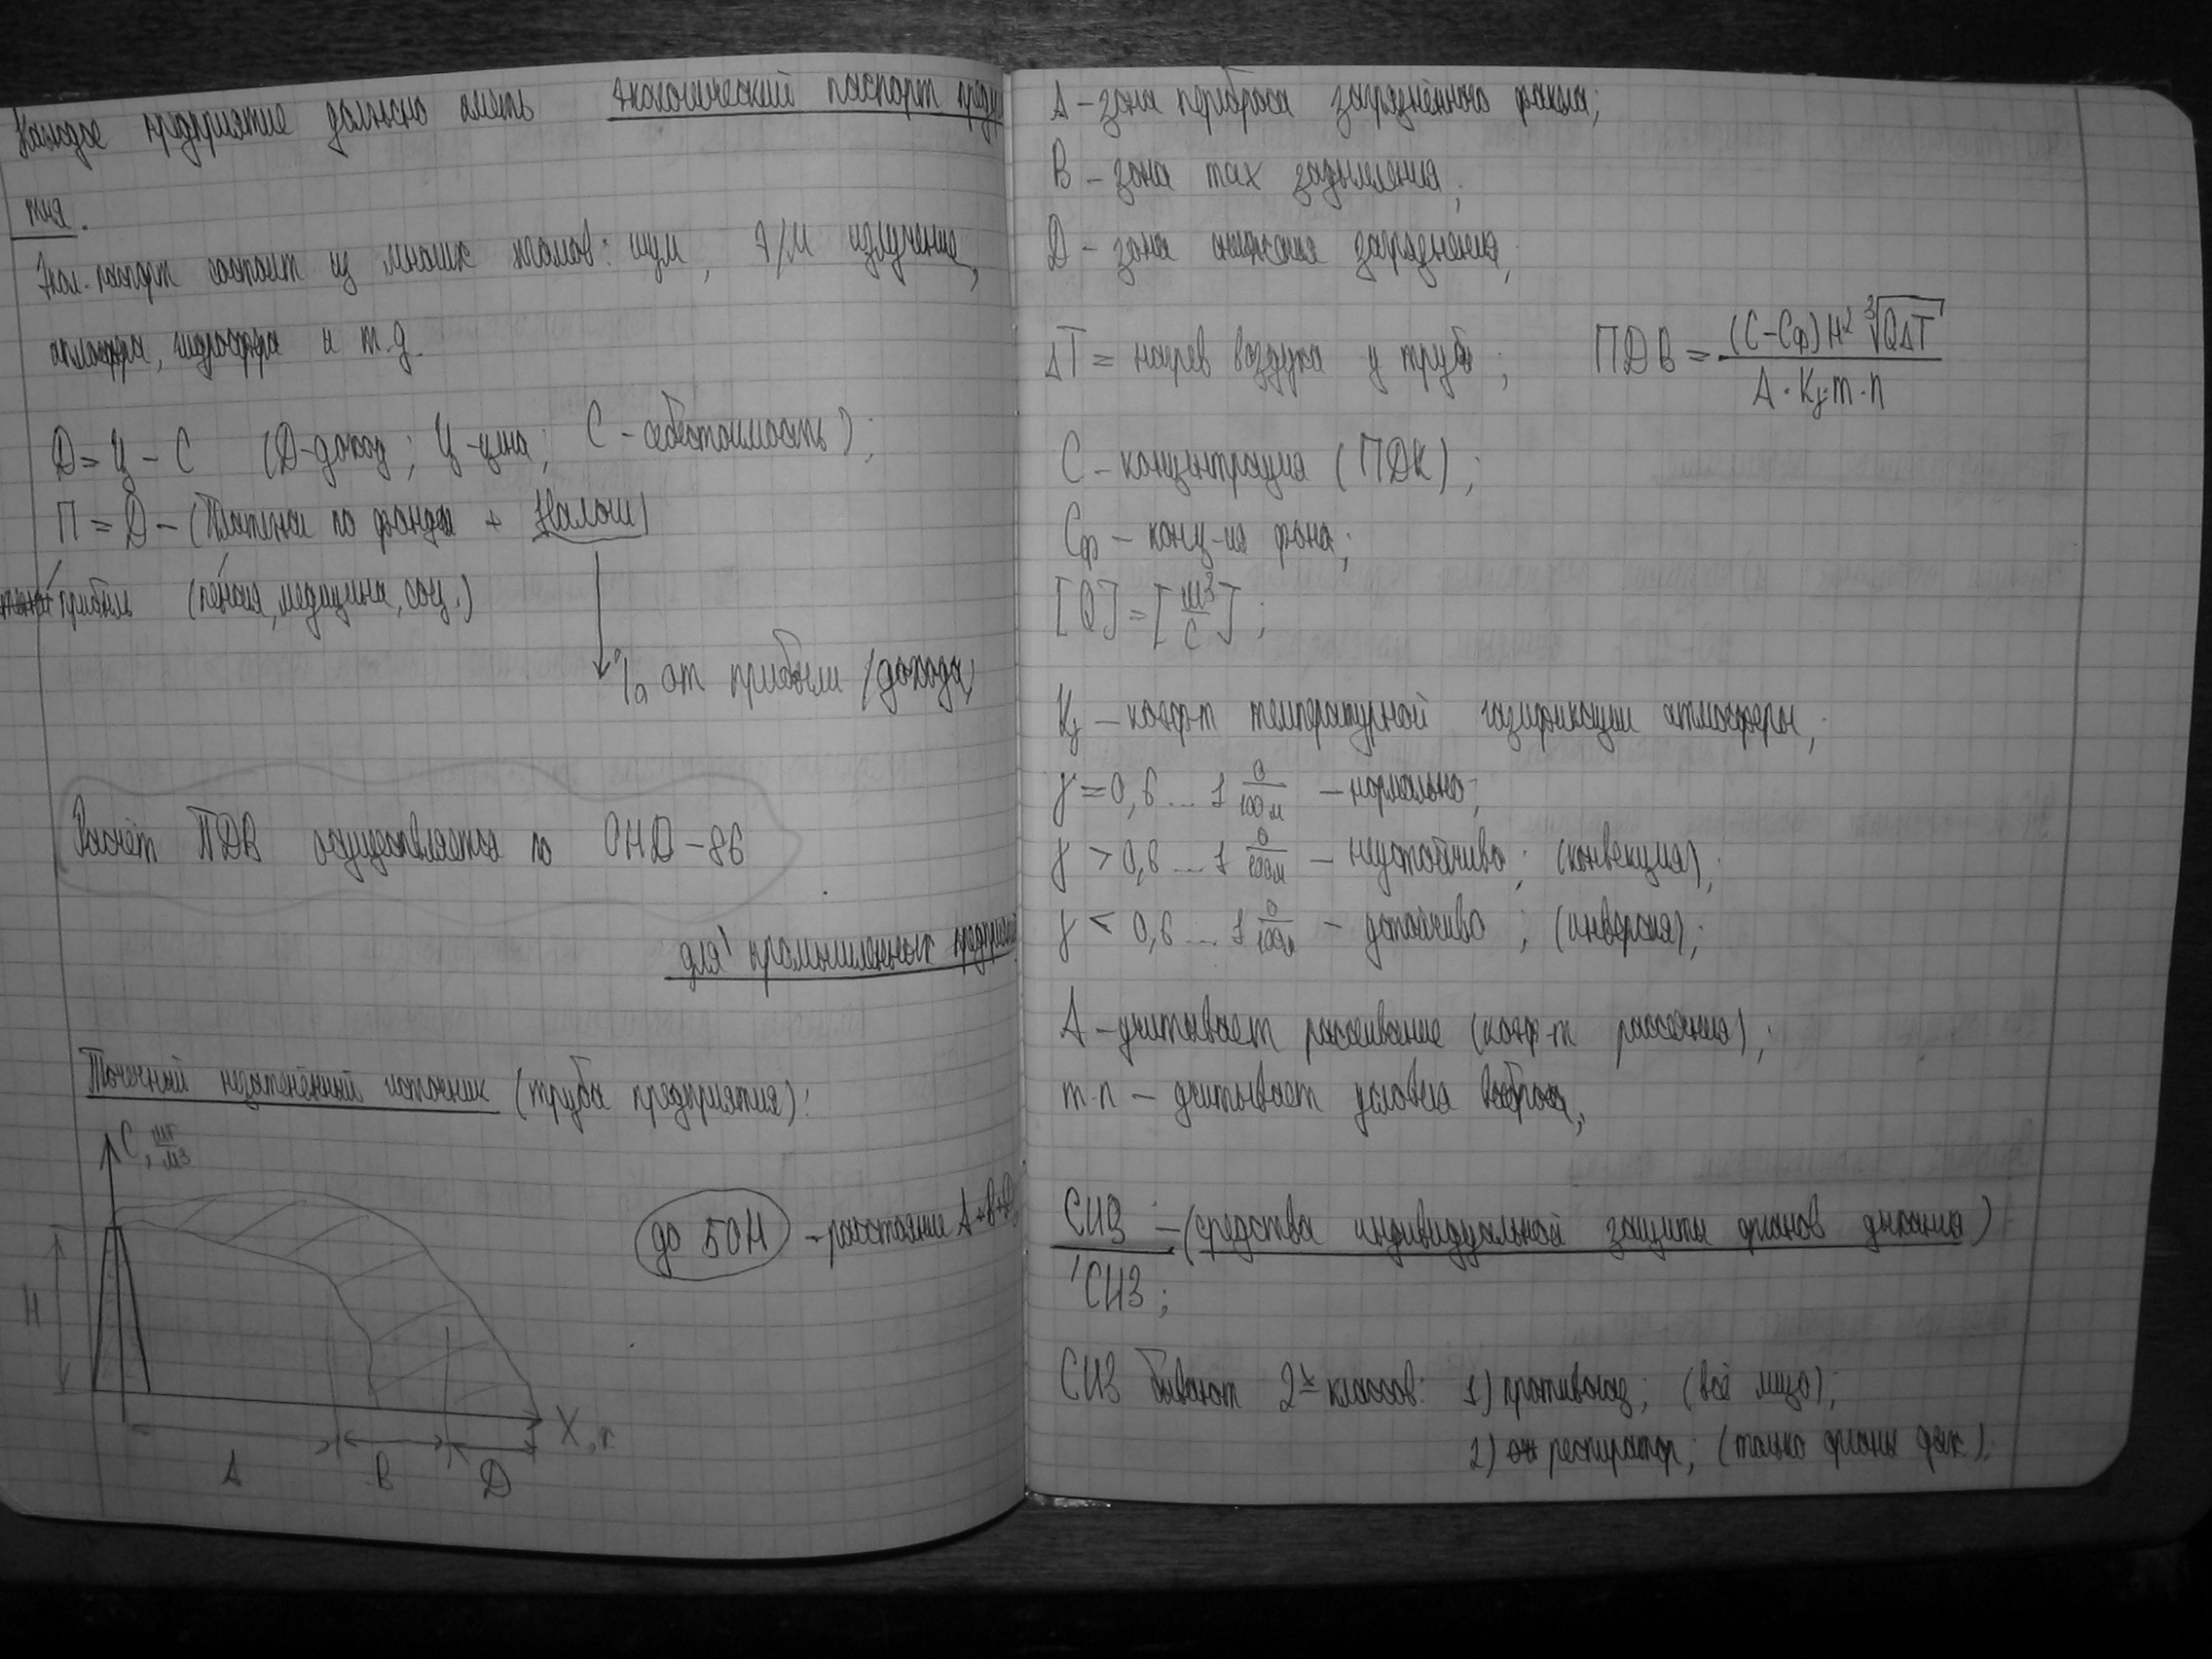 Каждое предприятие должно иметь экологический паспорт предпри
тия.
Экол. паспорт состоит из многих томов: шум, э/м излучение,
атмосфера, гидросфера и т.д.
Д = Ц - С (Д-доход; Ц-цена; С-себестоимость);
П = Д - (Платежи по фондам + Налоги)
прибыль (пенсия, медицина, соц.)
% от прибыли (дохода)
Расчёт ПДВ осуществляется по ОНД-86
для промышленных предприят
Точечный незатенённый источник (труба предприятия):
С, мг/м3
до 50H - расстояние А+В+Д
H
X, м
А В Д
А - зона переброса загрязнённого факела;
В - зона max задымления;
Д - зона снижения загрязнения;
ΔT = нагрев воздуха у трубы; ПДВ = (C-Cф)H² ∛QΔT / A·Kγ·m·n
С - концентрация (ПДК);
Сф - конц-ия фона;
[Q] = [м3/с];
Kγ - коэф-т температурной газификации атмосферы;
γ = 0,6 ... 1 0/100м - нормально;
γ > 0,6 ... 1 0/100м - неустойчиво; (конвекция);
γ < 0,6 ... 1 0/100м - устойчиво; (инверсия);
А - учитывает рассеивание (коэф-т рассеяния);
m·n - учитывает условия выброса;
СИЗ - (средства индивидуальной защиты органов дыхания)
СИЗ;
СИЗ бывают 2х классов: 1) противогаз; (всё лицо);
2) респиратор; (только органы дых).